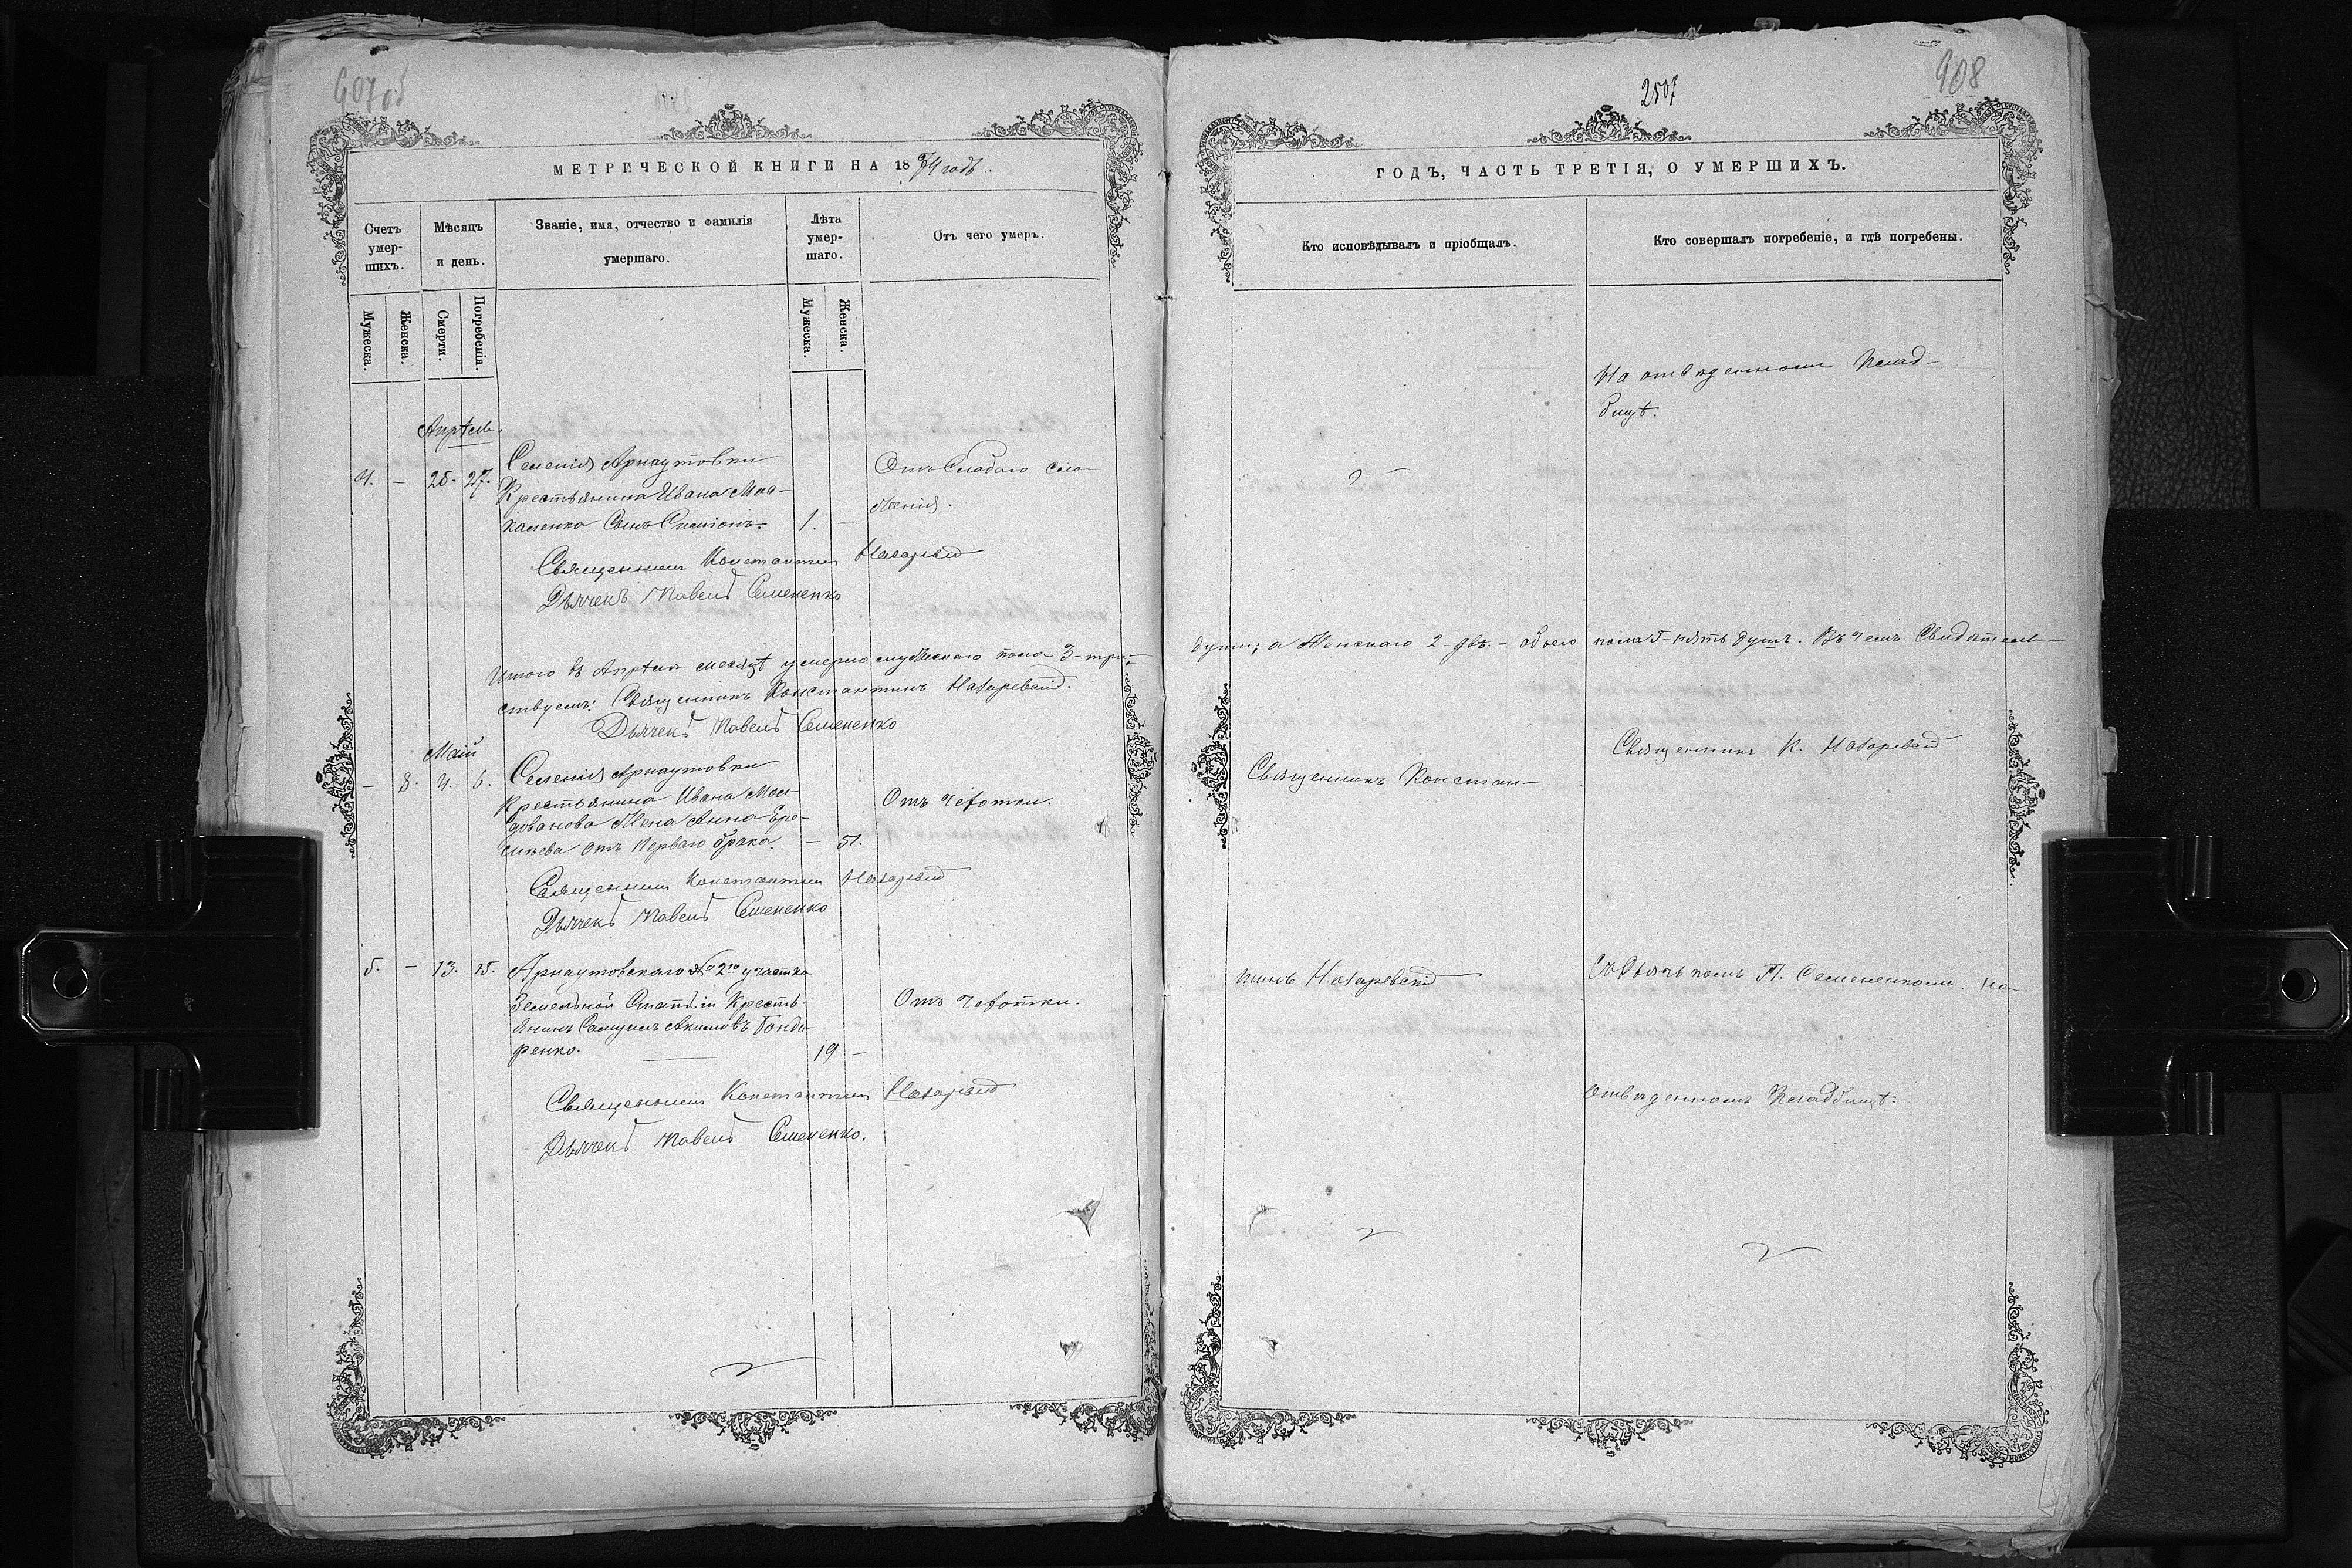 907об
МЕТРИЧЕСКОЙ КНИГИ НА 1874 годъ.
Счетъ умер-шихъ.
Мѣсяцъ и день.
Званіе, имя, отчество и фамилія умершаго.
Лѣта умер-шаго.
Отъ чего умеръ.
Мужеска.
Женска.
Смерти.
Погребенія.
Мужеска.
Женска.
Апрѣль.
4. – 25. 27. Селенія Арнаутовки
Крестьянина Ивана Мос-
каленко Сынъ Симіонъ. 1. –
Отъ Слабаго сло-
женія.
Священникъ Константинъ Назаревскій
Дьячекъ Павелъ Семененко
Итого въ Апрѣлѣ месяцѣ умерло мужескаго пола 3-три,
ствуемъ: Священникъ Константинъ Назаревскій.
Дьячекъ Павелъ Семененко
Маій
– 8. 4. 6. Селенія Арнаутовки
Крестьянина Ивана Мол-
дованова Жена Анна Ере-
меева отъ перваго брака. – 51.
Отъ Чахотки.
Священникъ Константинъ Назаревскій
Дьячекъ Павелъ Семененко
5. – 13. 15. Арнаутовскаго № 2го участка
Земельной Статьи Кресть-
янинъ Самуилъ Акимовъ Бонда-
ренко. 19 –
Отъ Чахотки.
Священникъ Константинъ Назаревскій
Дьячекъ Павелъ Семененко.
2507
908
ГОДЪ, ЧАСТЬ ТРЕТІЯ, О УМЕРШИХЪ.
Кто исповѣдывалъ и пріобщалъ.
Кто совершалъ погребеніе, и гдѣ погребены.
На отведенномъ Клад-
бищѣ.
души; а Женскаго 2-двѣ. – обоего пола 5-пять душъ. Въ чемъ Свидѣтель-
Священникъ Констан-
Священникъ К. Назаревскій
тинъ Назаревскій
Съ Дьячькомъ П. Семененкомъ. на
отведенномъ Кладбищѣ.